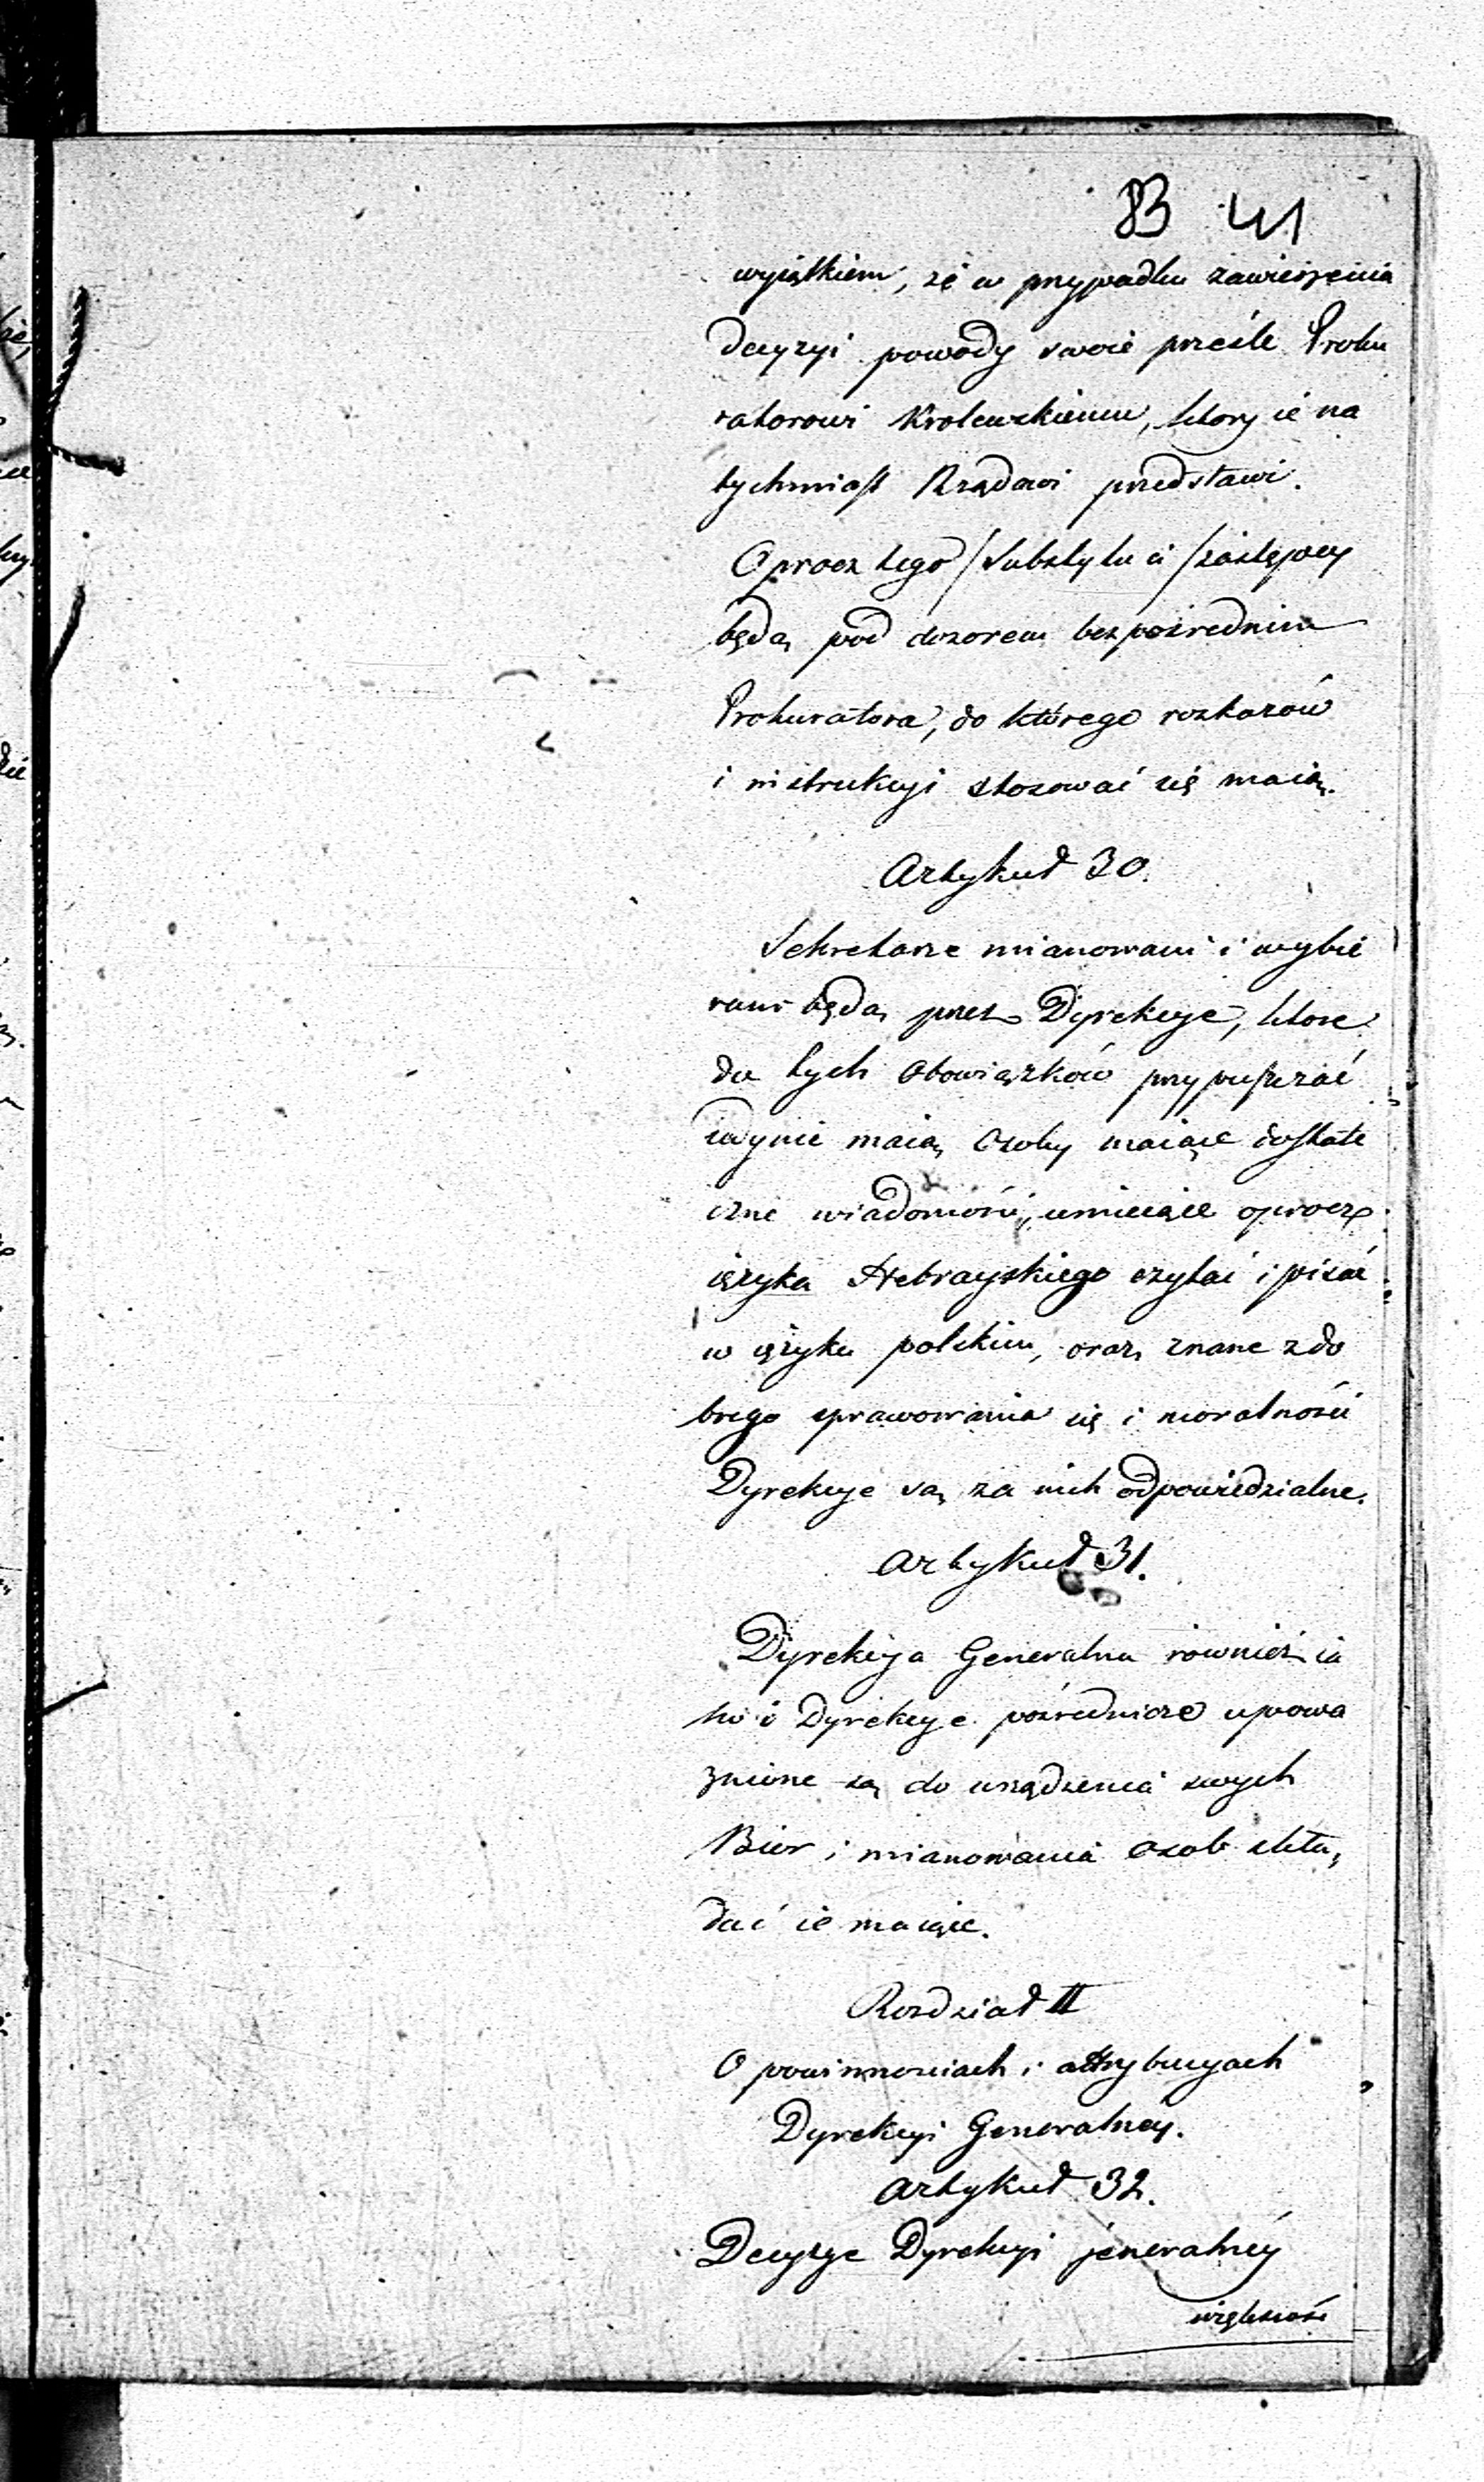 83 41
wyiątkiem, że w przypadku zawieszenia
decyzyi powody swoie prześle Proku
ratorowi Krolewskiemu, ktory ie na
tychmiast Rządowi przedstawi.
Oprocz tego Substytuci zastępcy
będą pod dozorem bezpośrednim
Prokuratora, do którego rozkazów
i instrukcyi stosować się maią.
Artykuł 30.
Sekretarze mianowani i wybie
rani będą przez Dyrekcye, ktore
do tych obowiązków przypuszczać
iedynie maią Osoby maiące dostate
czne wiadomości, umieiące oprocz
ięzyka Hebrayskiego czytać i pisać
w ięzyku polskim, oraz znane z do
brego sprawowania się i moralności
Dyrekcye są za nich odpowiedzialne.
Artykuł 31.
Dyrekcya Generalna rownież ia
ko i Dyrekcye pośrednicze upowa
żnione są do urządzenia swych
Biór i mianowania osob skła
dać ie maiące.
Rozdział II
O powinnosciach i attrybucyach
Dyrekcyi Generalney.
Artykuł 32.
Decyzye Dyrekcyi jeneralnéy
większość